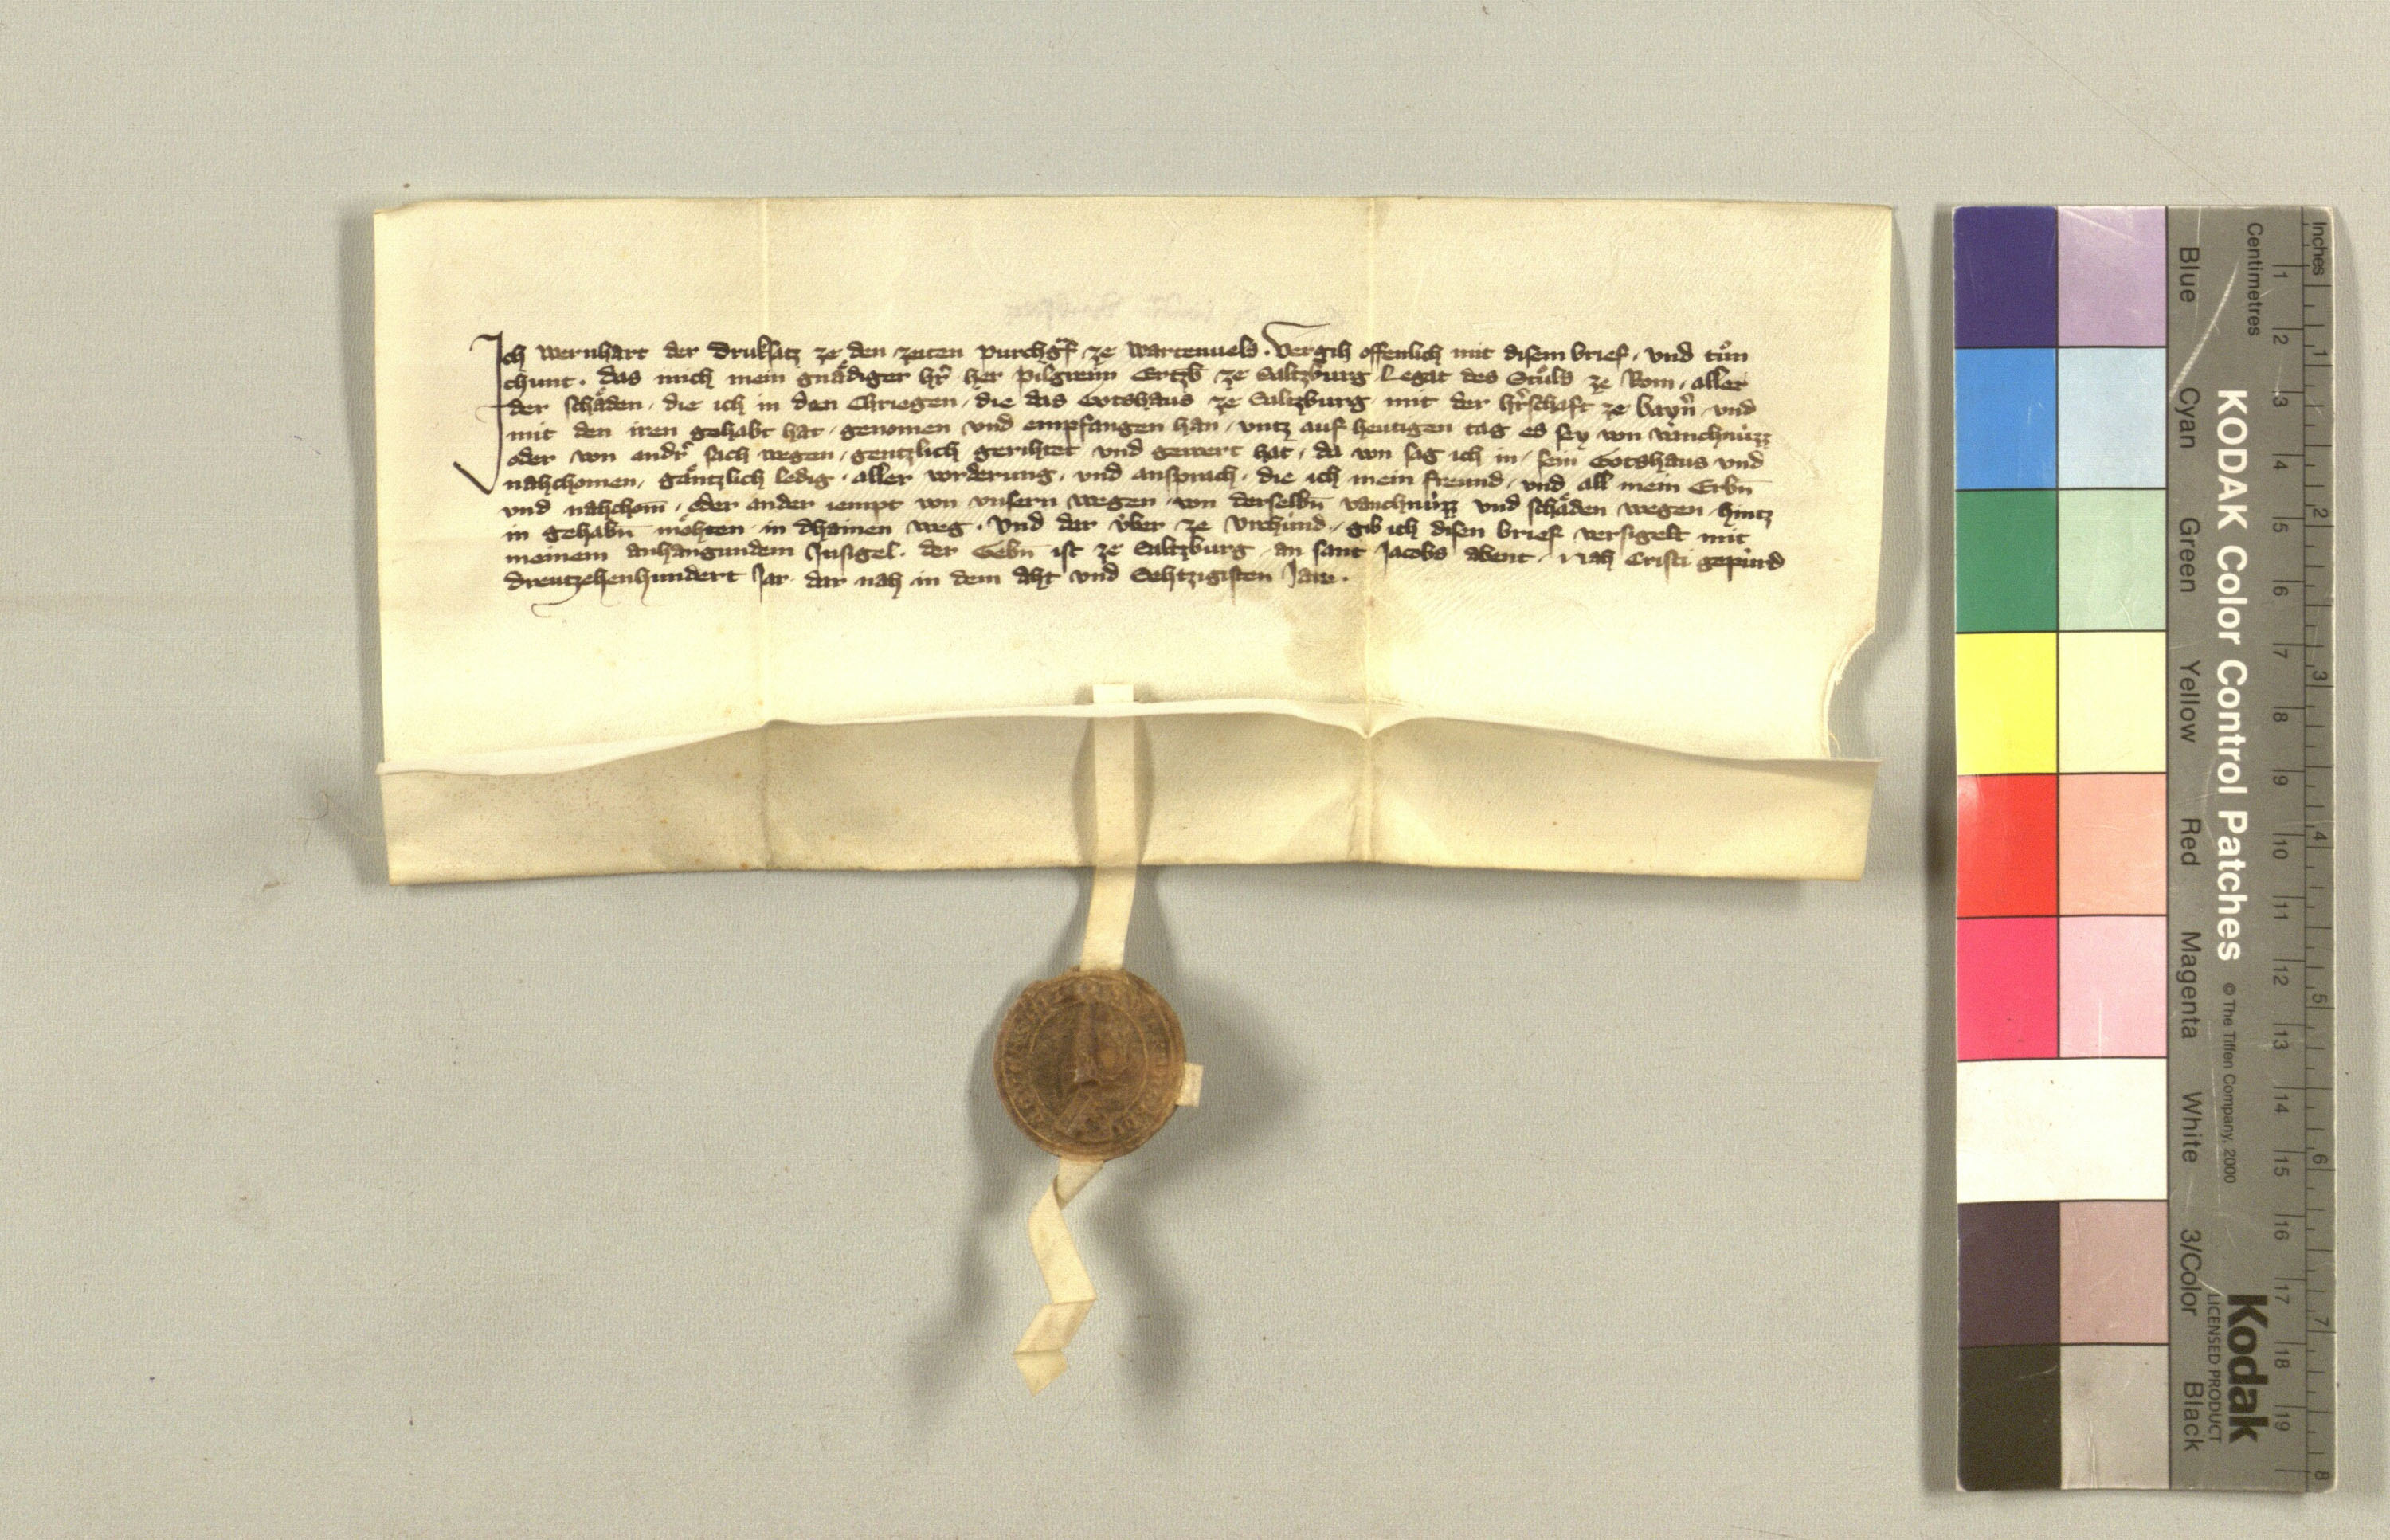 Ich wernhart der Druksatz ze den zeiten purchgͣf ze wartenuels. Vergih offenlich mit disem brief, und tuͦn
chunt. das mich mein gnaͤdiger hr̄ her pilgreim Ertzb̄ ze Saltzburg Legat des Stuͦls ze Rom, aller
der schaͤden, die ich in den Chriegen, die das Gotshaus ze Saltzburg mit der hr̄schaft ze bayr̄n und
mit den iren gehabt hat, genomen und empfangen han, untz auf heutigen tag es sey von vanchnuͤzz
oder von andr̄ sach wegen, gentzlich gerihtet und gewert hat, da von sag ich in, sein Gotshaus und
nahchomen, gaͤntzlich ledig, aller vorderung, und ansprach, die ich mein freund, und all mein Erbn̄
und nahchom̄, oder ander iempt von unsern wegen von derselbn̄ vanchnuͤzz und schaͤden wegen, hintz
in gehabn̄ moͤhten in dhainen weg. Und dar uͤber ze Urchund, gib ich disen brief versigelt mit
meinem anhangundem Insigel. der Gebn̄ ist ze Saltzburg an sant Jacobs abent, Nah Cristi gepuͤrd
dreutzehenhundert Jar dar nah in dem aht und Sehtzigisten Jare.
KODAK Color Control Patches
© The Tiffen Company, 2000
Kodak
LICENSED PRODUCT
Blue Cyan Green Yellow Red Magenta White 3/Color Black
Centimetres
1 2 3 4 5 6 7 8 9 10 11 12 13 14 15 16 17 18 19
Inches
1 2 3 4 5 6 7 8